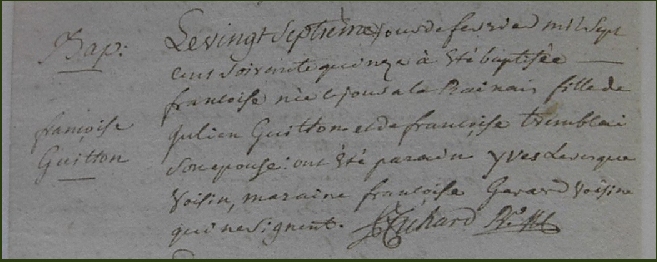 Bap:
françoise
Guitton
Le vingt septieme jour de fevrier mil sept
cens soixente quinze à été baptisée
francoise née le jour a la Rainais fille de
Julien Guitton et de françoise tremblai
son epouse: ont été parain yves Levesque
Voisin, maraine françoise Gerard Voisine
qui ne signent. Richard